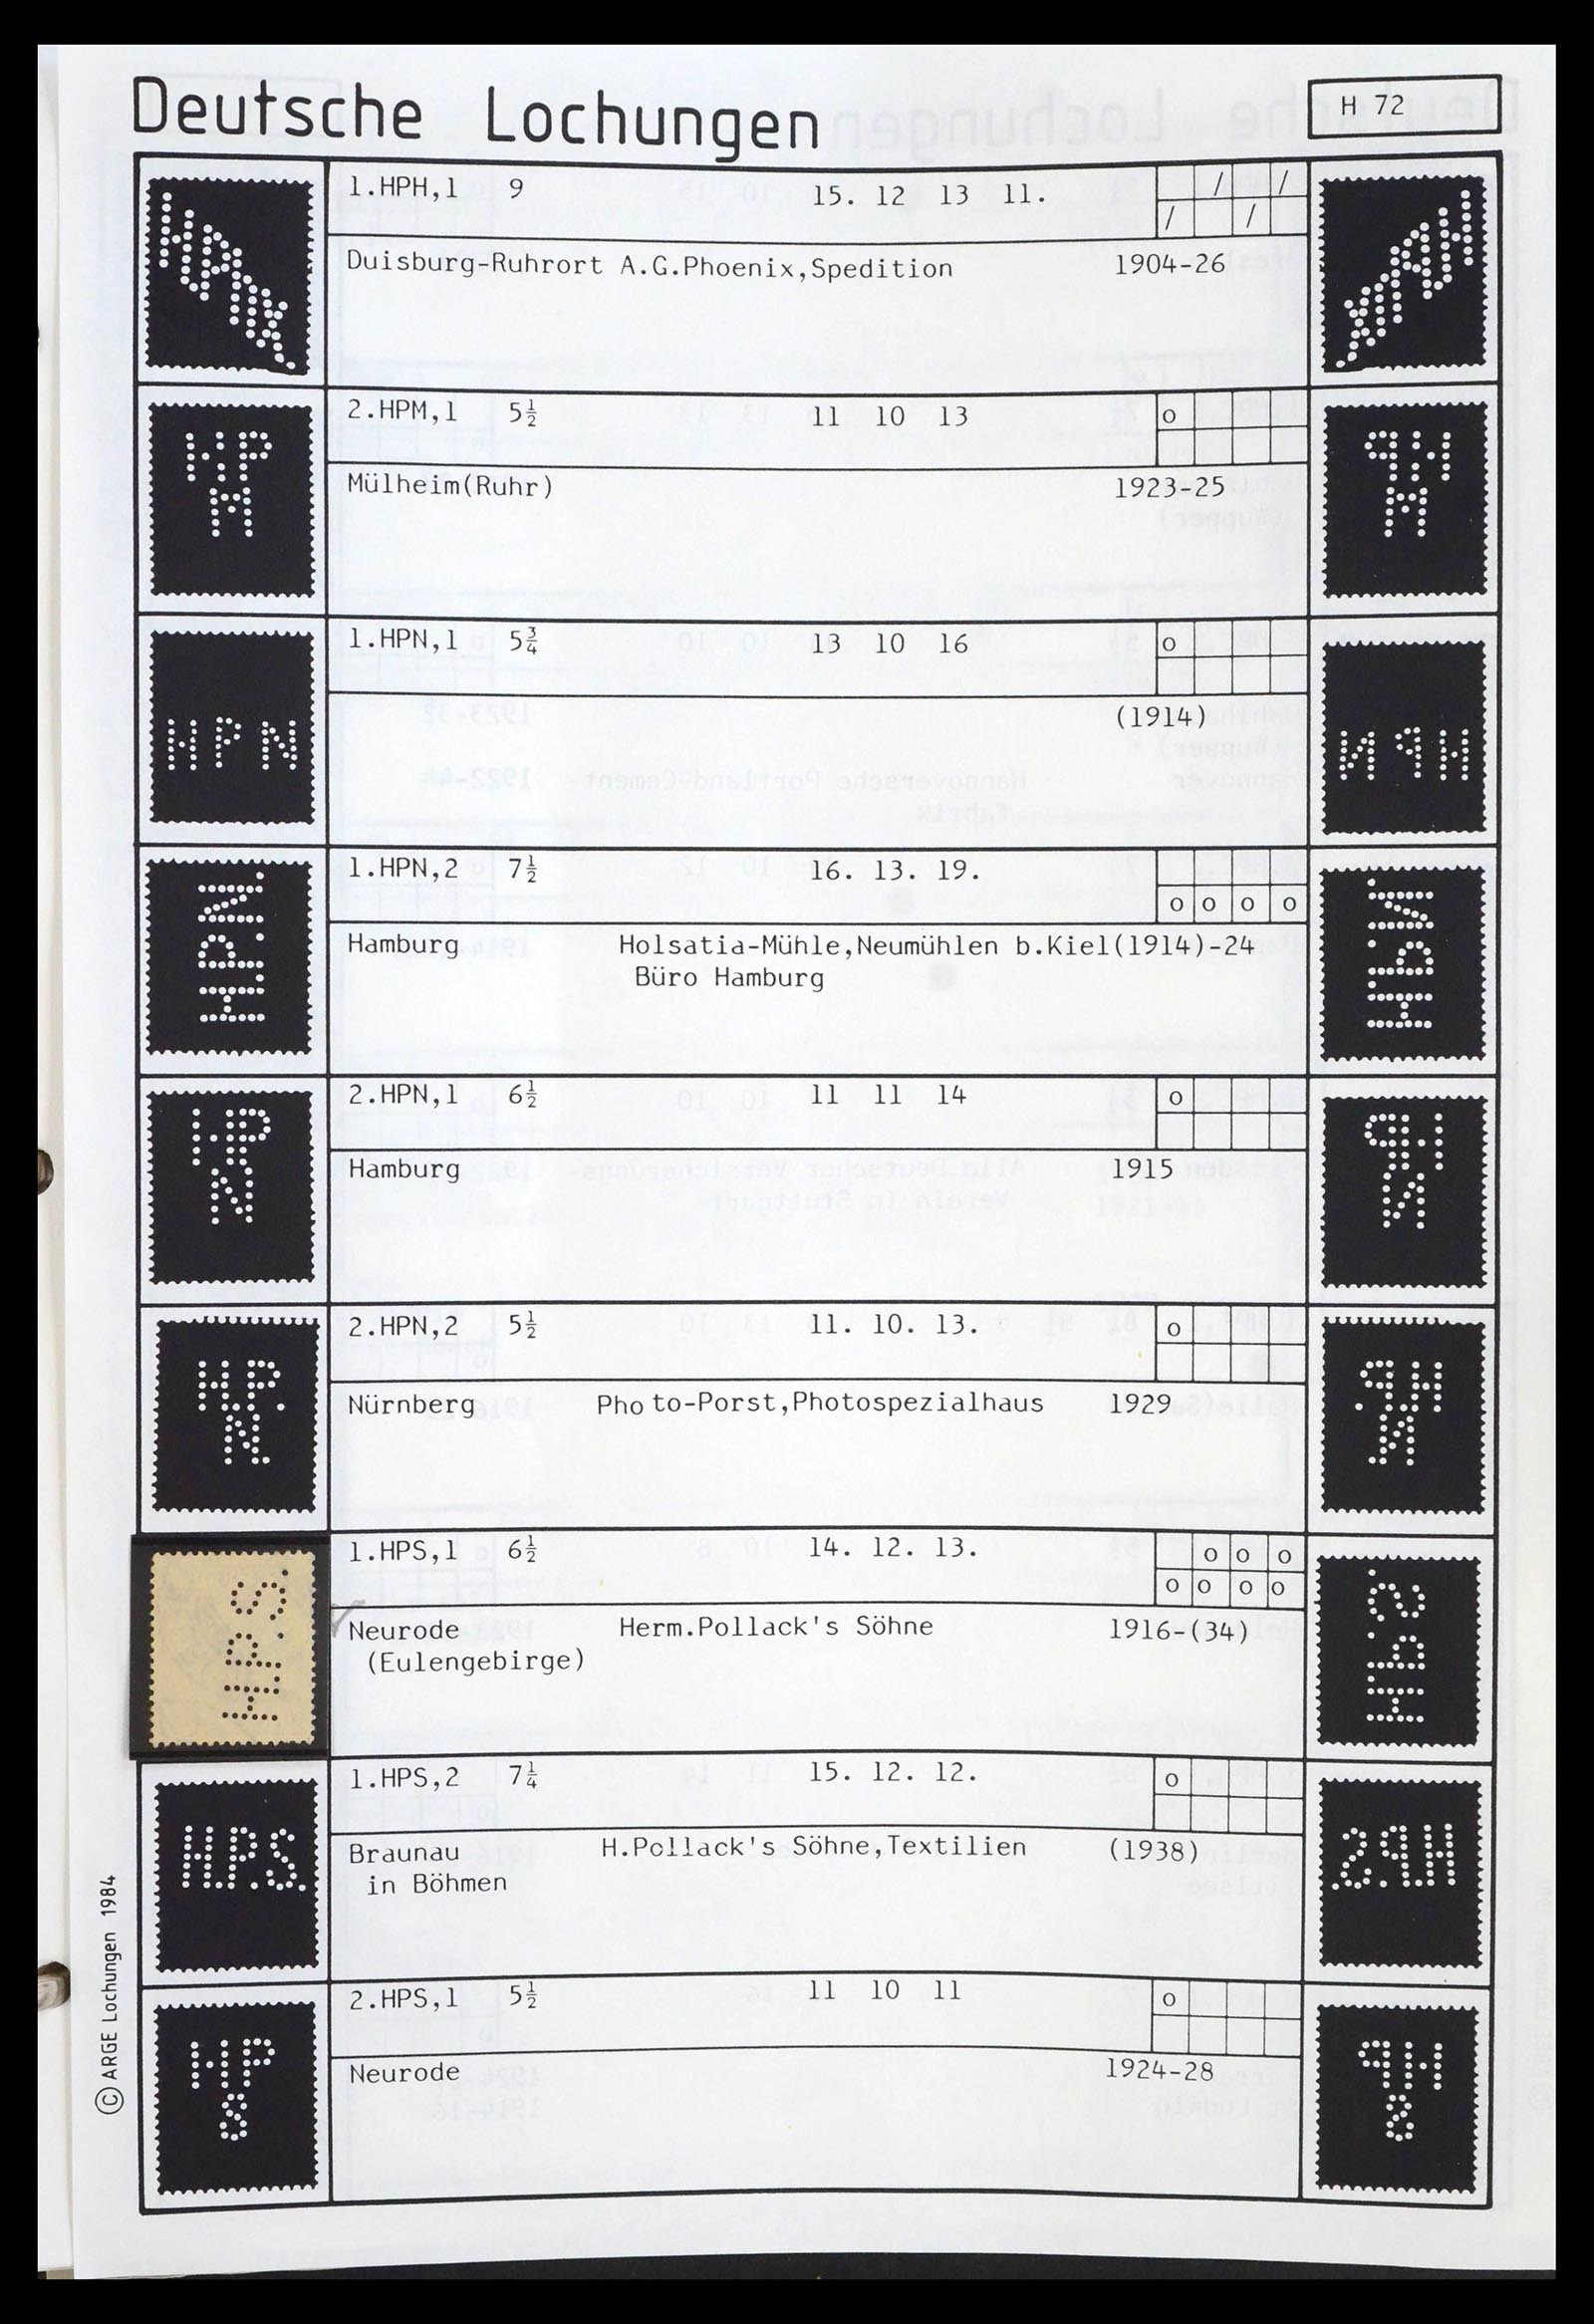 Deutsche Lochungen
H 72
1.HPH,1 9 15. 12 13 11.
Duisburg-Ruhrort A.G.Phoenix,Spedition 1904-26
HP HP
M M
2.HPM,1 5½ 11 10 13 o
Mülheim(Ruhr) 1923-25
HPN HPN
1.HPN,1 5¾ 13 10 16 o
(1914)
H.P.N. H.P.N.
1.HPN,2 7½ 16. 13. 19. o o o o
Hamburg Holsatia-Mühle,Neumühlen b.Kiel(1914)-24
Büro Hamburg
HP HP
N N
2.HPN,1 6½ 11 11 14 o
Hamburg 1915
H.P. H.P.
N. N.
2.HPN,2 5½ 11. 10. 13. o
Nürnberg Photo-Porst,Photospezialhaus 1929
H.P.S. H.P.S.
1.HPS,1 6½ 14. 12. 13. o o o
o o o o
Neurode Herm.Pollack's Söhne 1916-(34)
(Eulengebirge)
H.P.S. H.P.S.
1.HPS,2 7¼ 15. 12. 12. o
Braunau H.Pollack's Söhne,Textilien (1938)
in Böhmen
HP HP
S S
2.HPS,1 5½ 11 10 11 o
Neurode 1924-28
© ARGE Lochungen 1984